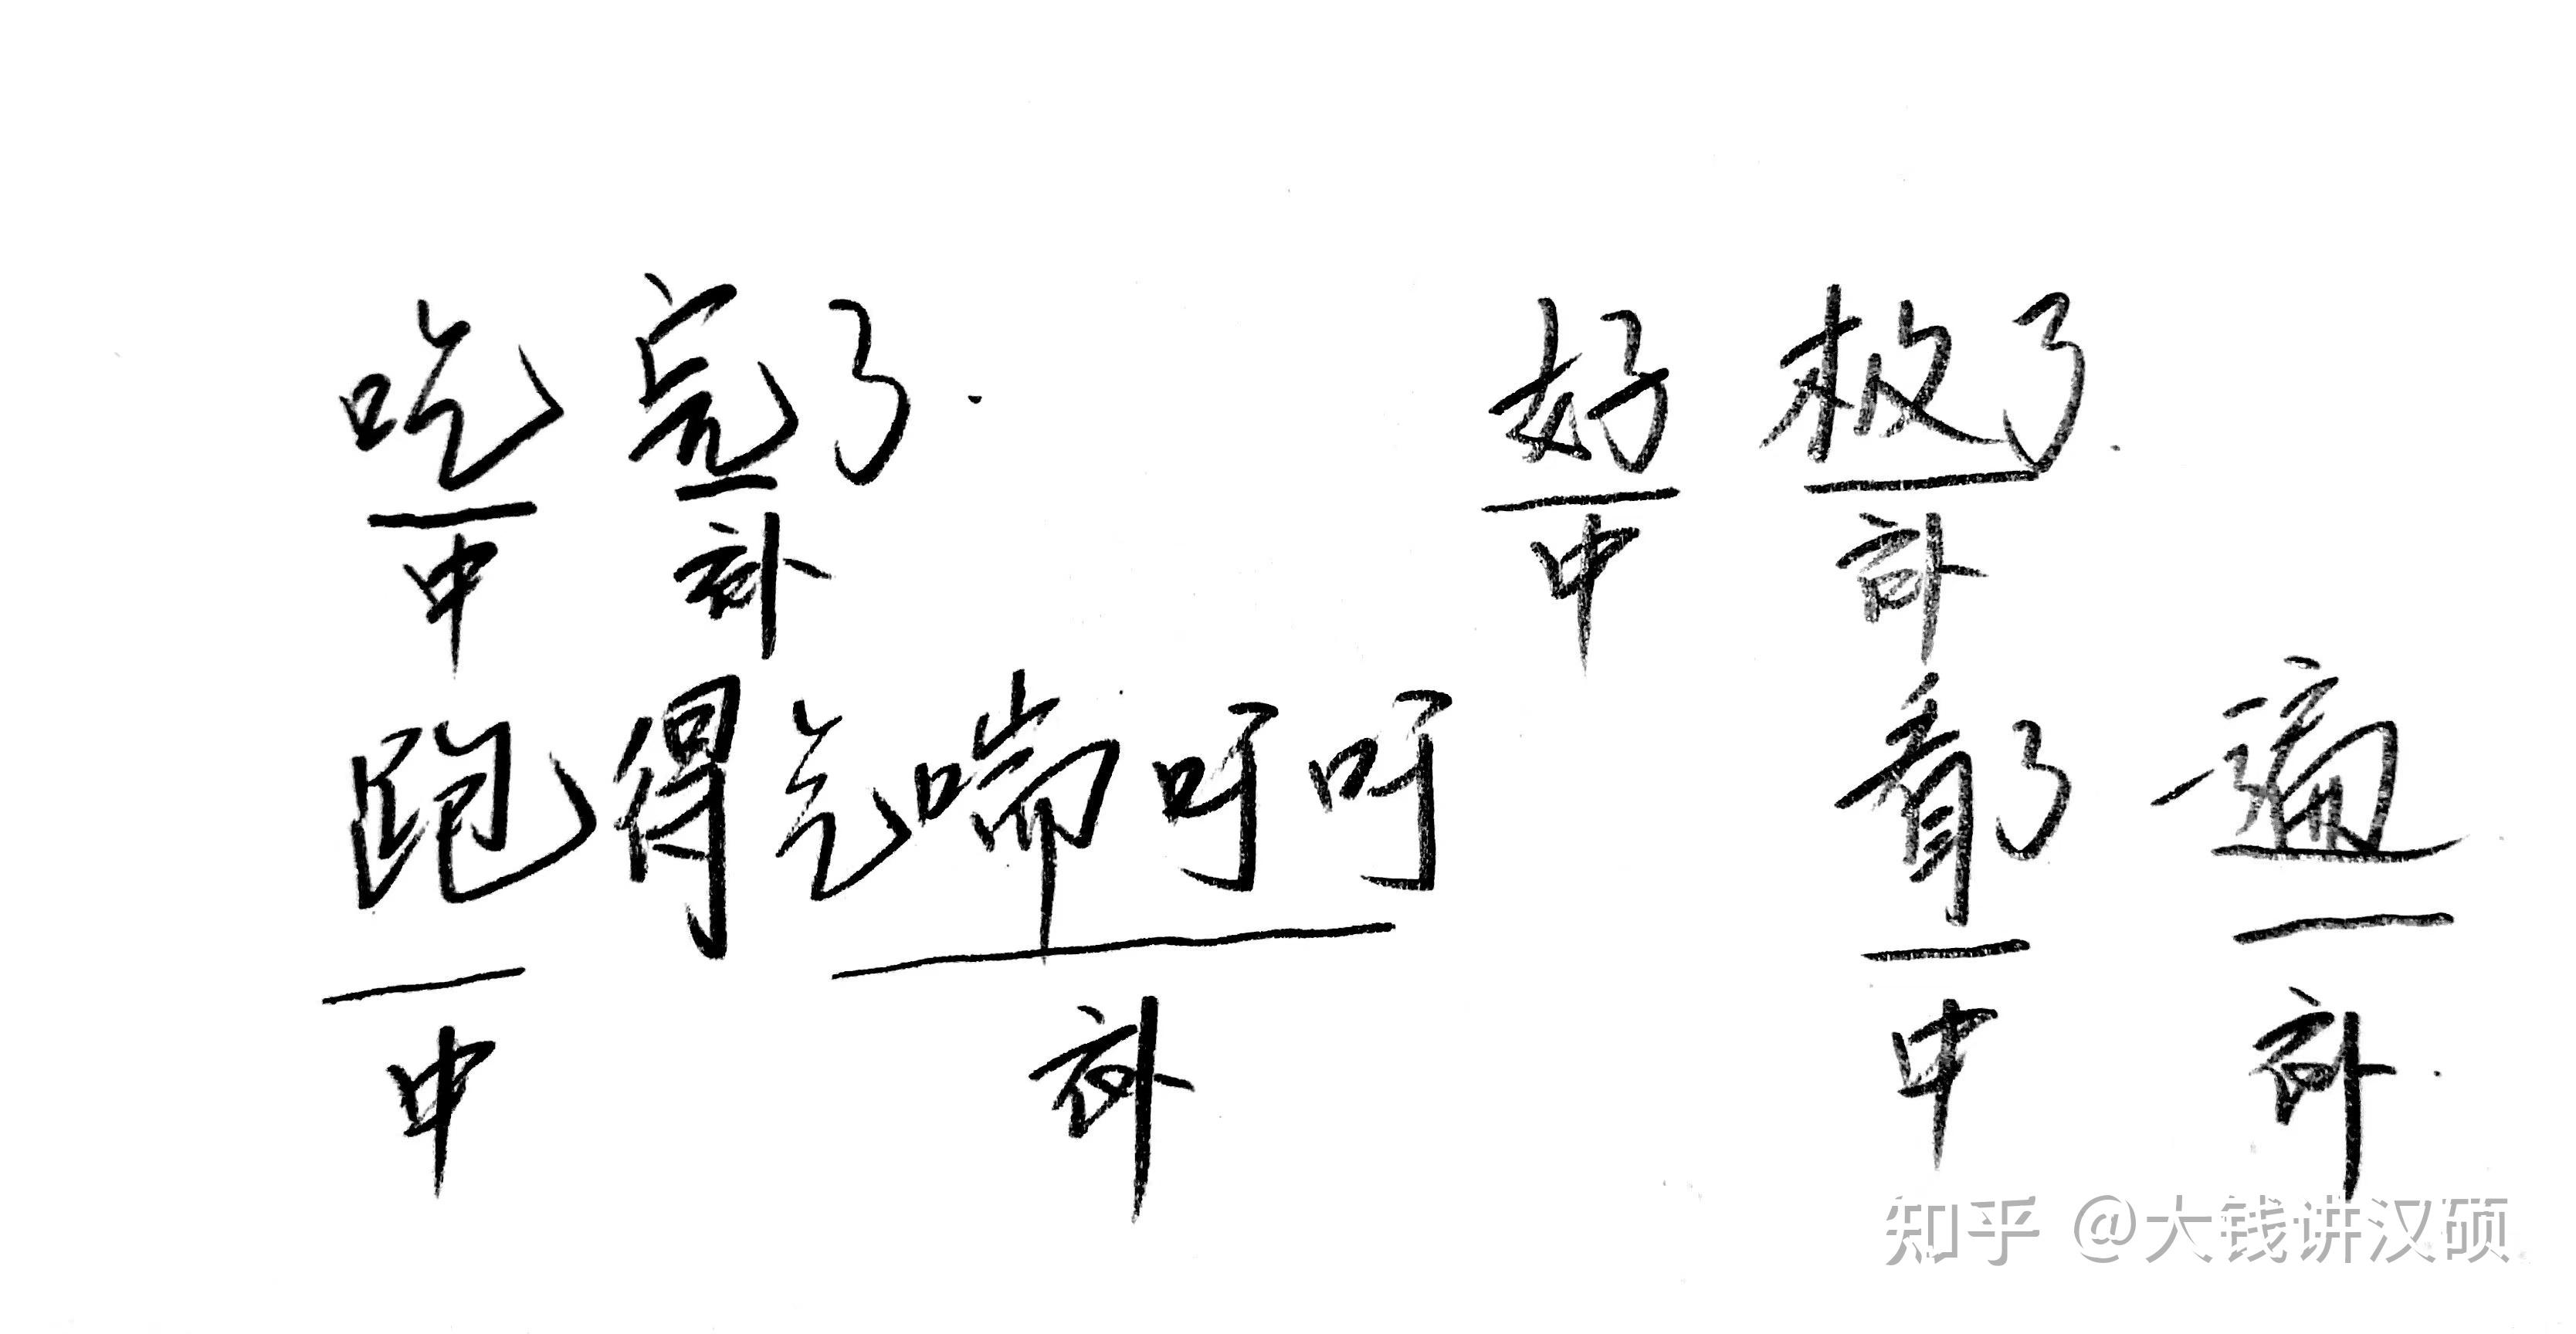 吃完了. 好极了.
中 补 中 补
跑得气喘吁吁 看了一遍
中 补 中 补.
知乎 @大钱讲汉硕